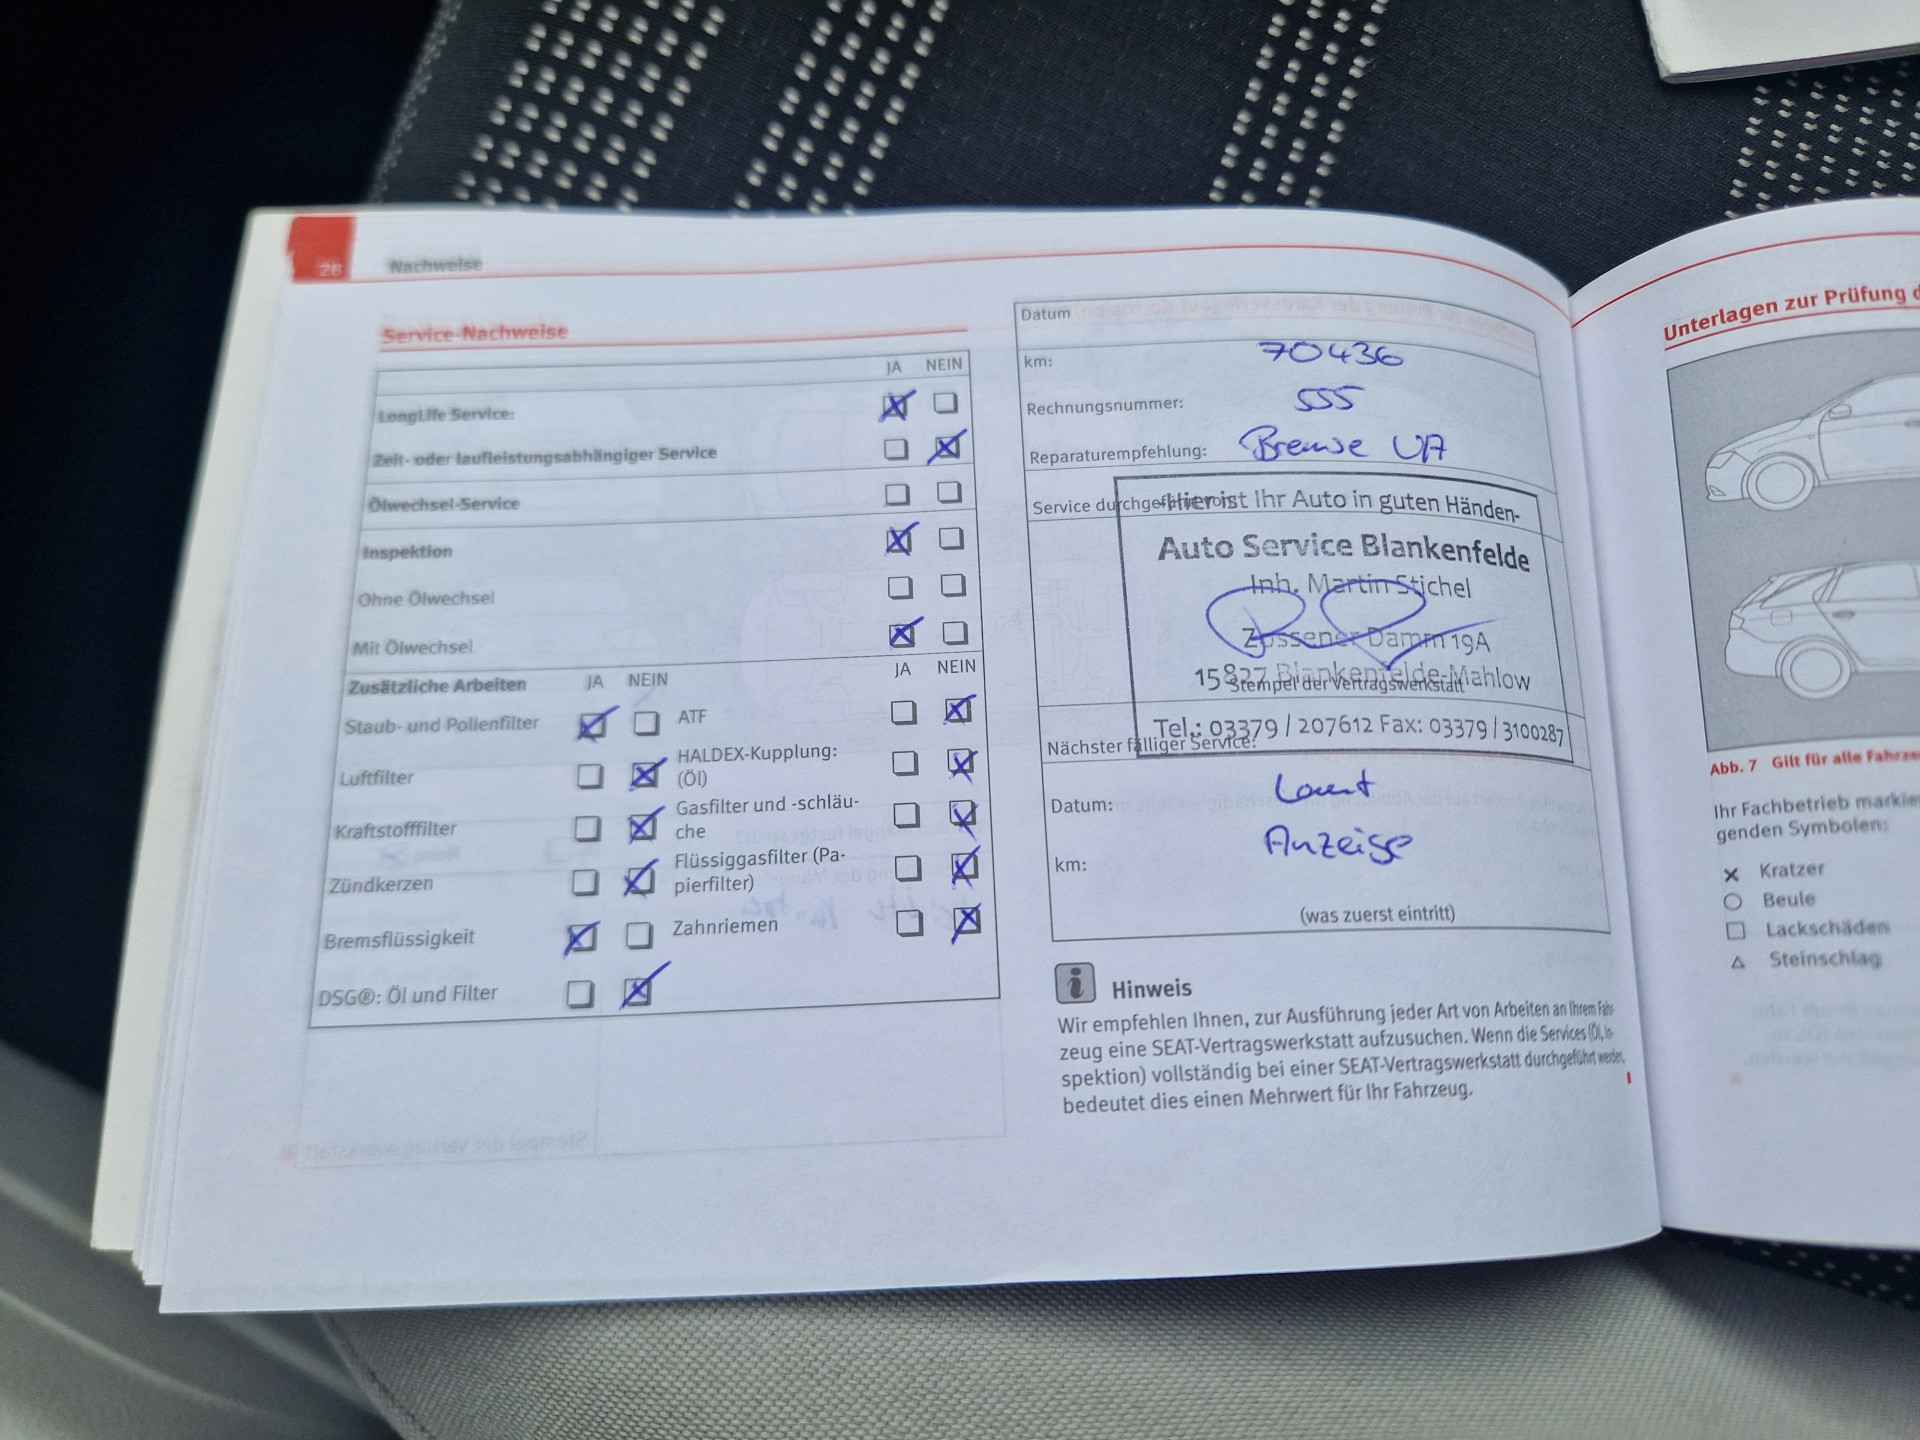 26 Nachweise
Service-Nachweise
JA NEIN
LongLife Service:
Zeit- oder laufleistungsabhängiger Service
Ölwechsel-Service
Inspektion
Ohne Ölwechsel
Mit Ölwechsel
Zusätzliche Arbeiten JA NEIN JA NEIN
Staub- und Pollenfilter ATF
Luftfilter HALDEX-Kupplung:
(Öl)
Kraftstofffilter Gasfilter und -schläu-
che
Zündkerzen Flüssiggasfilter (Pa-
pierfilter)
Bremsflüssigkeit Zahnriemen
DSG®: Öl und Filter
Datum
km: 70436
Rechnungsnummer: 555
Reparaturempfehlung: Bremse
Service durchgeführt von:
-Hier ist Ihr Auto in guten Händen-
Auto Service Blankenfelde
Inh. Martin Stichel
Zossener Damm 19A
15827 Blankenfelde-Mahlow
Stempel der Vertragswerkstatt
Tel.: 03379 / 207612 Fax: 03379 / 3100287
Nächster fälliger Service:
Datum: Laut
Anzeige
km:
(was zuerst eintritt)
i Hinweis
Wir empfehlen Ihnen, zur Ausführung jeder Art von Arbeiten an Ihrem Fahr-
zeug eine SEAT-Vertragswerkstatt aufzusuchen. Wenn die Services (Öl, In-
spektion) vollständig bei einer SEAT-Vertragswerkstatt durchgeführt werden,
bedeutet dies einen Mehrwert für Ihr Fahrzeug.
Unterlagen zur Prüfung
Abb. 7 Gilt für alle Fahrze
Ihr Fachbetrieb markie
genden Symbolen:
Kratzer
Beule
Lackschäden
Steinschlag